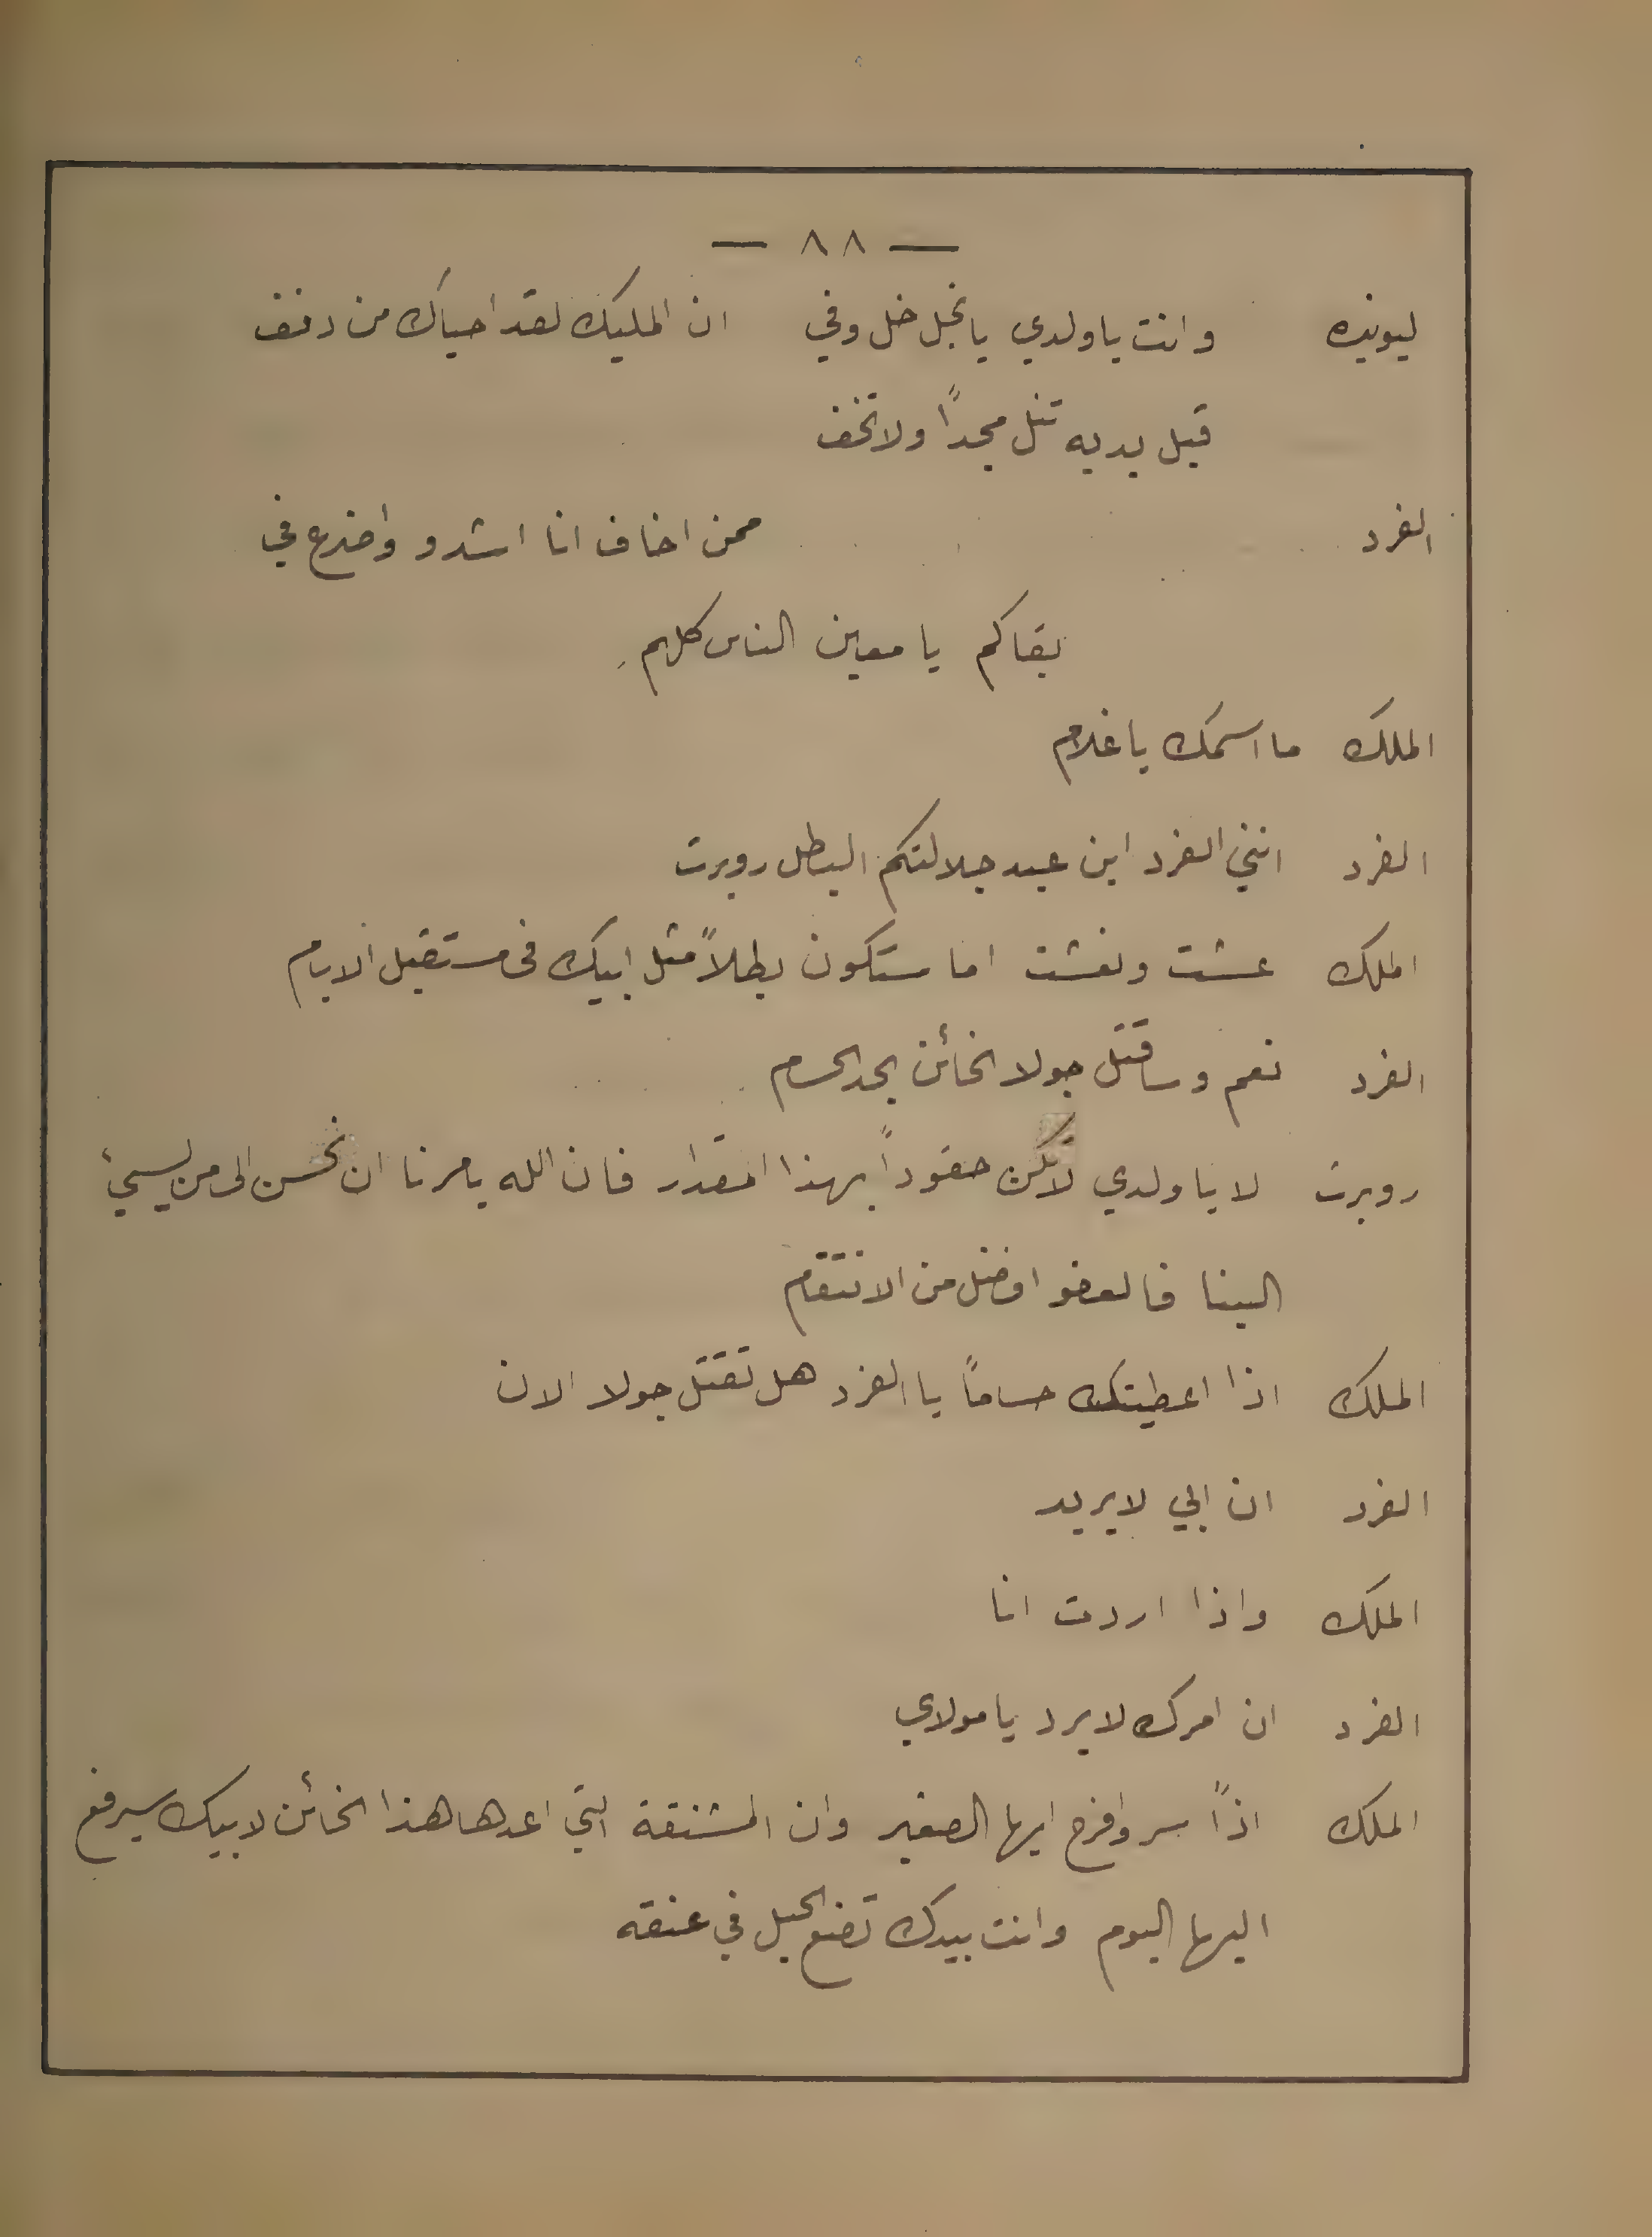 — ٨٨ —
ليونيده وانت يا ولدي يا نجل خل وفي ان المليك لقد احياك من دنف
قبل يديه تنل مجداً ولا تخف
الفرد ممن اخاف انا اشدو وافرع في
بقاكم يا معين الناس كلهم
الملك ما اسمك يا غلام
الفرد انني الفرد ابن عبد جلالتكم البطل روبرت
الملك عشت ونعشت اما ستكون بطلاً مثل ابيك فى مستقبل الايام
الفرد نعم وساقتل جولا الخائن بحد الحسام
روبرت لا يا ولدي لا تكن حقوداً بهذا المقدار فان الله يامرنا ان نحسن الى من يسيئ
الينا فالعفو افضل من الانتقام
الملك اذا اعطيتك حساماً يا الفرد هل تقتل جولا الان
الفرد ان ابي لا يريد
الملك واذا اردت انا
الفرد ان امرك لا يرد يا مولاي
الملك اذاً سر وافرح ايها الصغير وان المشنقة التي اعدها هذا الخائن لابيك سيرفع
اليها اليوم وانت بيدك تضع الحبل في عنقه